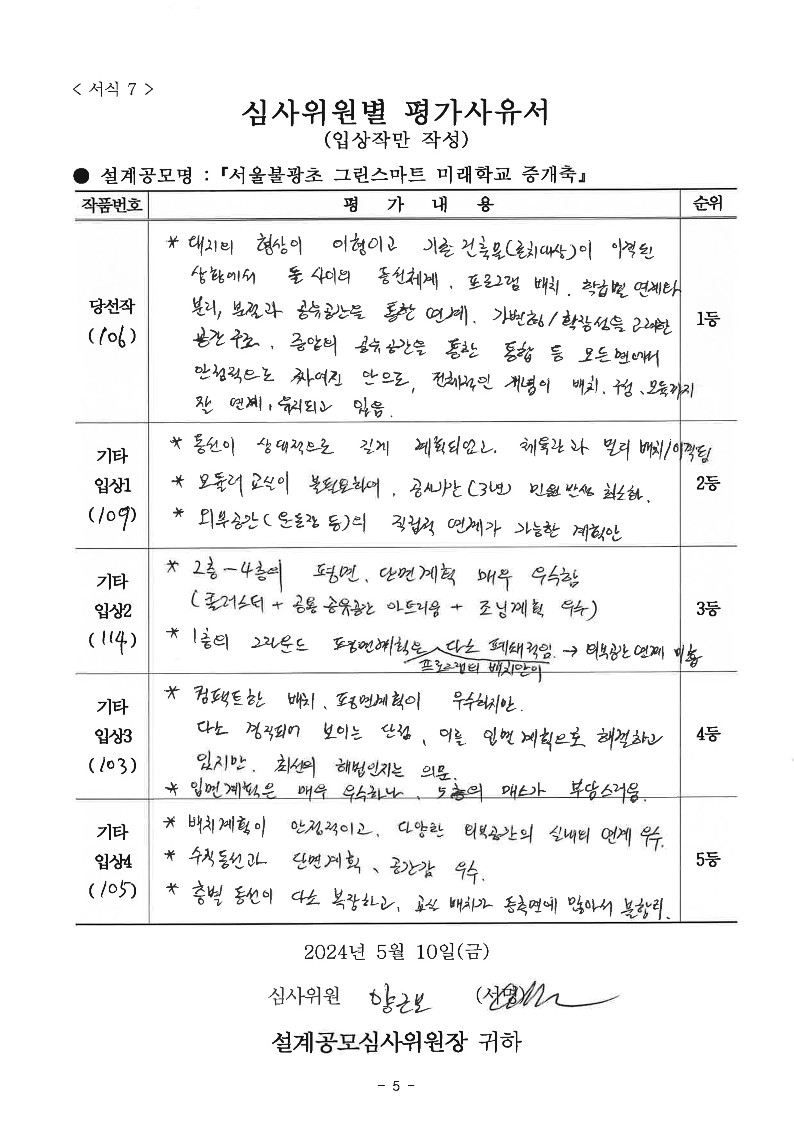 < 서식 7 >
심사위원별 평가사유서
(입상작만 작성)
● 설계공모명 : 『서울불광초 그린스마트 미래학교 증개축』
작품번호 평 가 내 용 순위
당선작
(106)
* 대지의 형상이 이형이고 기존 건축물(존치대상)이 이격된
상황에서 둘 사이의 동선체계, 프로그램 배치, 학습별 연계와
분리, 보행과 공유공간을 통한 연계, 가변형/확장성을 고려한
공간구조, 중앙의 공유공간을 통한 통합 등 모든면에서
안정적으로 짜여진 안으로, 전체적인 개념이 배치, 구성, 모듈까지
잘 연계, 유지되고 있음.
1등
기타
입상1
(109)
* 동선이 상대적으로 길게 계획되었고, 체육관과 멀리 배치/이격됨
* 모듈러 교실이 불필요하여, 공사기간(3년) 민원 발생 최소화.
* 외부공간(운동장 등)의 직접적 연계가 가능한 계획안
2등
기타
입상2
(114)
* 2층-4층의 평면, 단면계획 매우 우수함
(클러스터 + 공통 공유공간 아트리움 + 조닝계획 우수)
* 1층의 그라운드 평면계획은 다소 폐쇄적임. → 외부공간 연계 미흡
프로그램의 배치만이
3등
기타
입상3
(103)
* 컴팩트한 배치, 평면계획이 우수하지만.
다소 경직되어 보이는 단점, 이를 입면계획으로 해결하고
있지만, 최선의 해법인지는 의문.
* 입면계획은 매우 우수하나, 5층의 매스가 부담스러움.
4등
기타
입상4
(105)
* 배치계획이 안정적이고, 다양한 외부공간의 실내외 연계 우수.
* 수직동선과 단면계획, 공간감 우수.
* 층별 동선이 다소 복잡하고, 교실 배치가 동측면에 많아서 불합리.
5등
2024년 5월 10일(금)
심사위원 양근보 (서명)
설계공모심사위원장 귀하
- 5 -